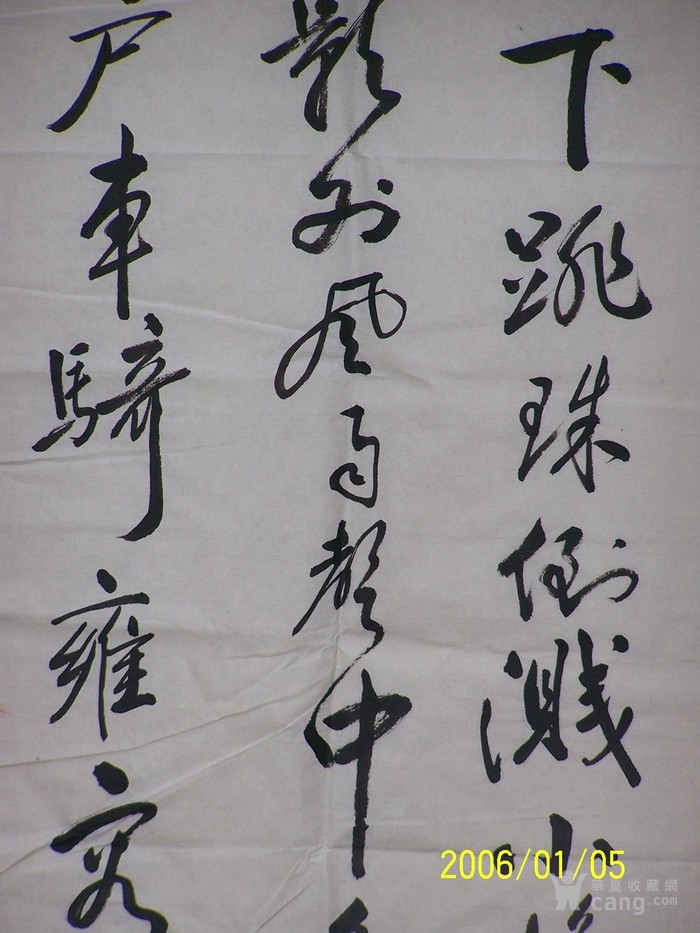 下跳珠倒溅小
影外风雨聲中
户車騎雍容
2006/01/05
華夏收藏網
cang.com